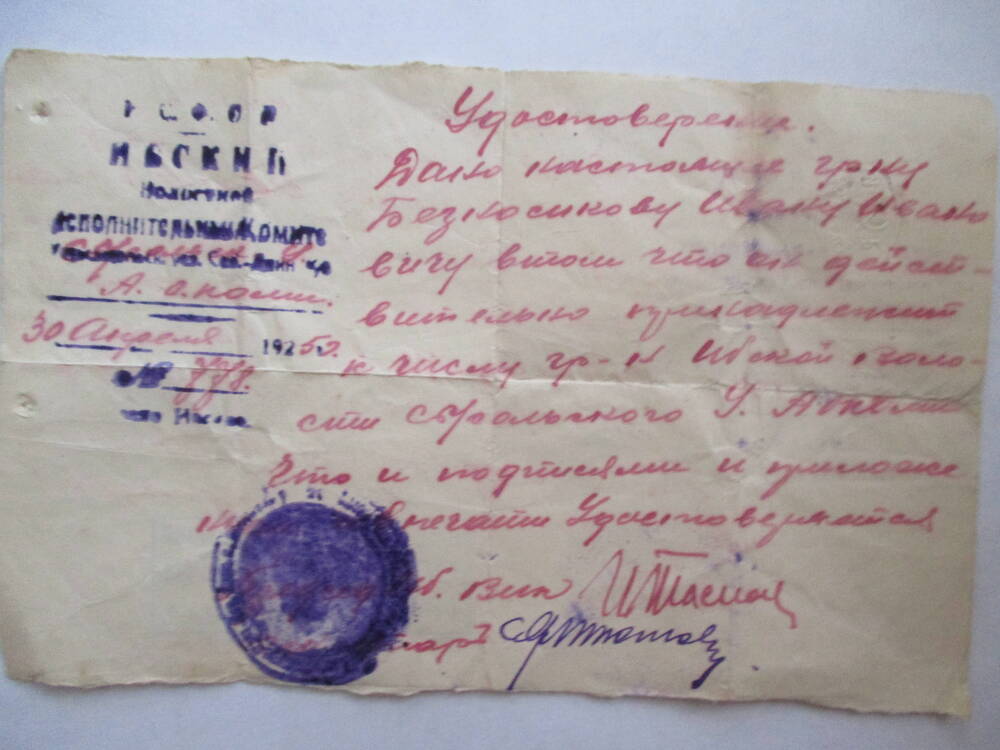 РСФСР
ИБСКИЙ
Волостной
Исполнительный Комите
А. о. коми.
30 Апреля 1925 г.
№ 778.
Удостоверение.
Дано настоящие гр-ну
Безносикову Ивану Ивано
вичу в том что он дейст-
вительно принадлежит
к числу гр-н Ибской воло-
сти Сысольского У. Ав. Коми
Что и подписями и приложе
печати Удостоверяется
Вик